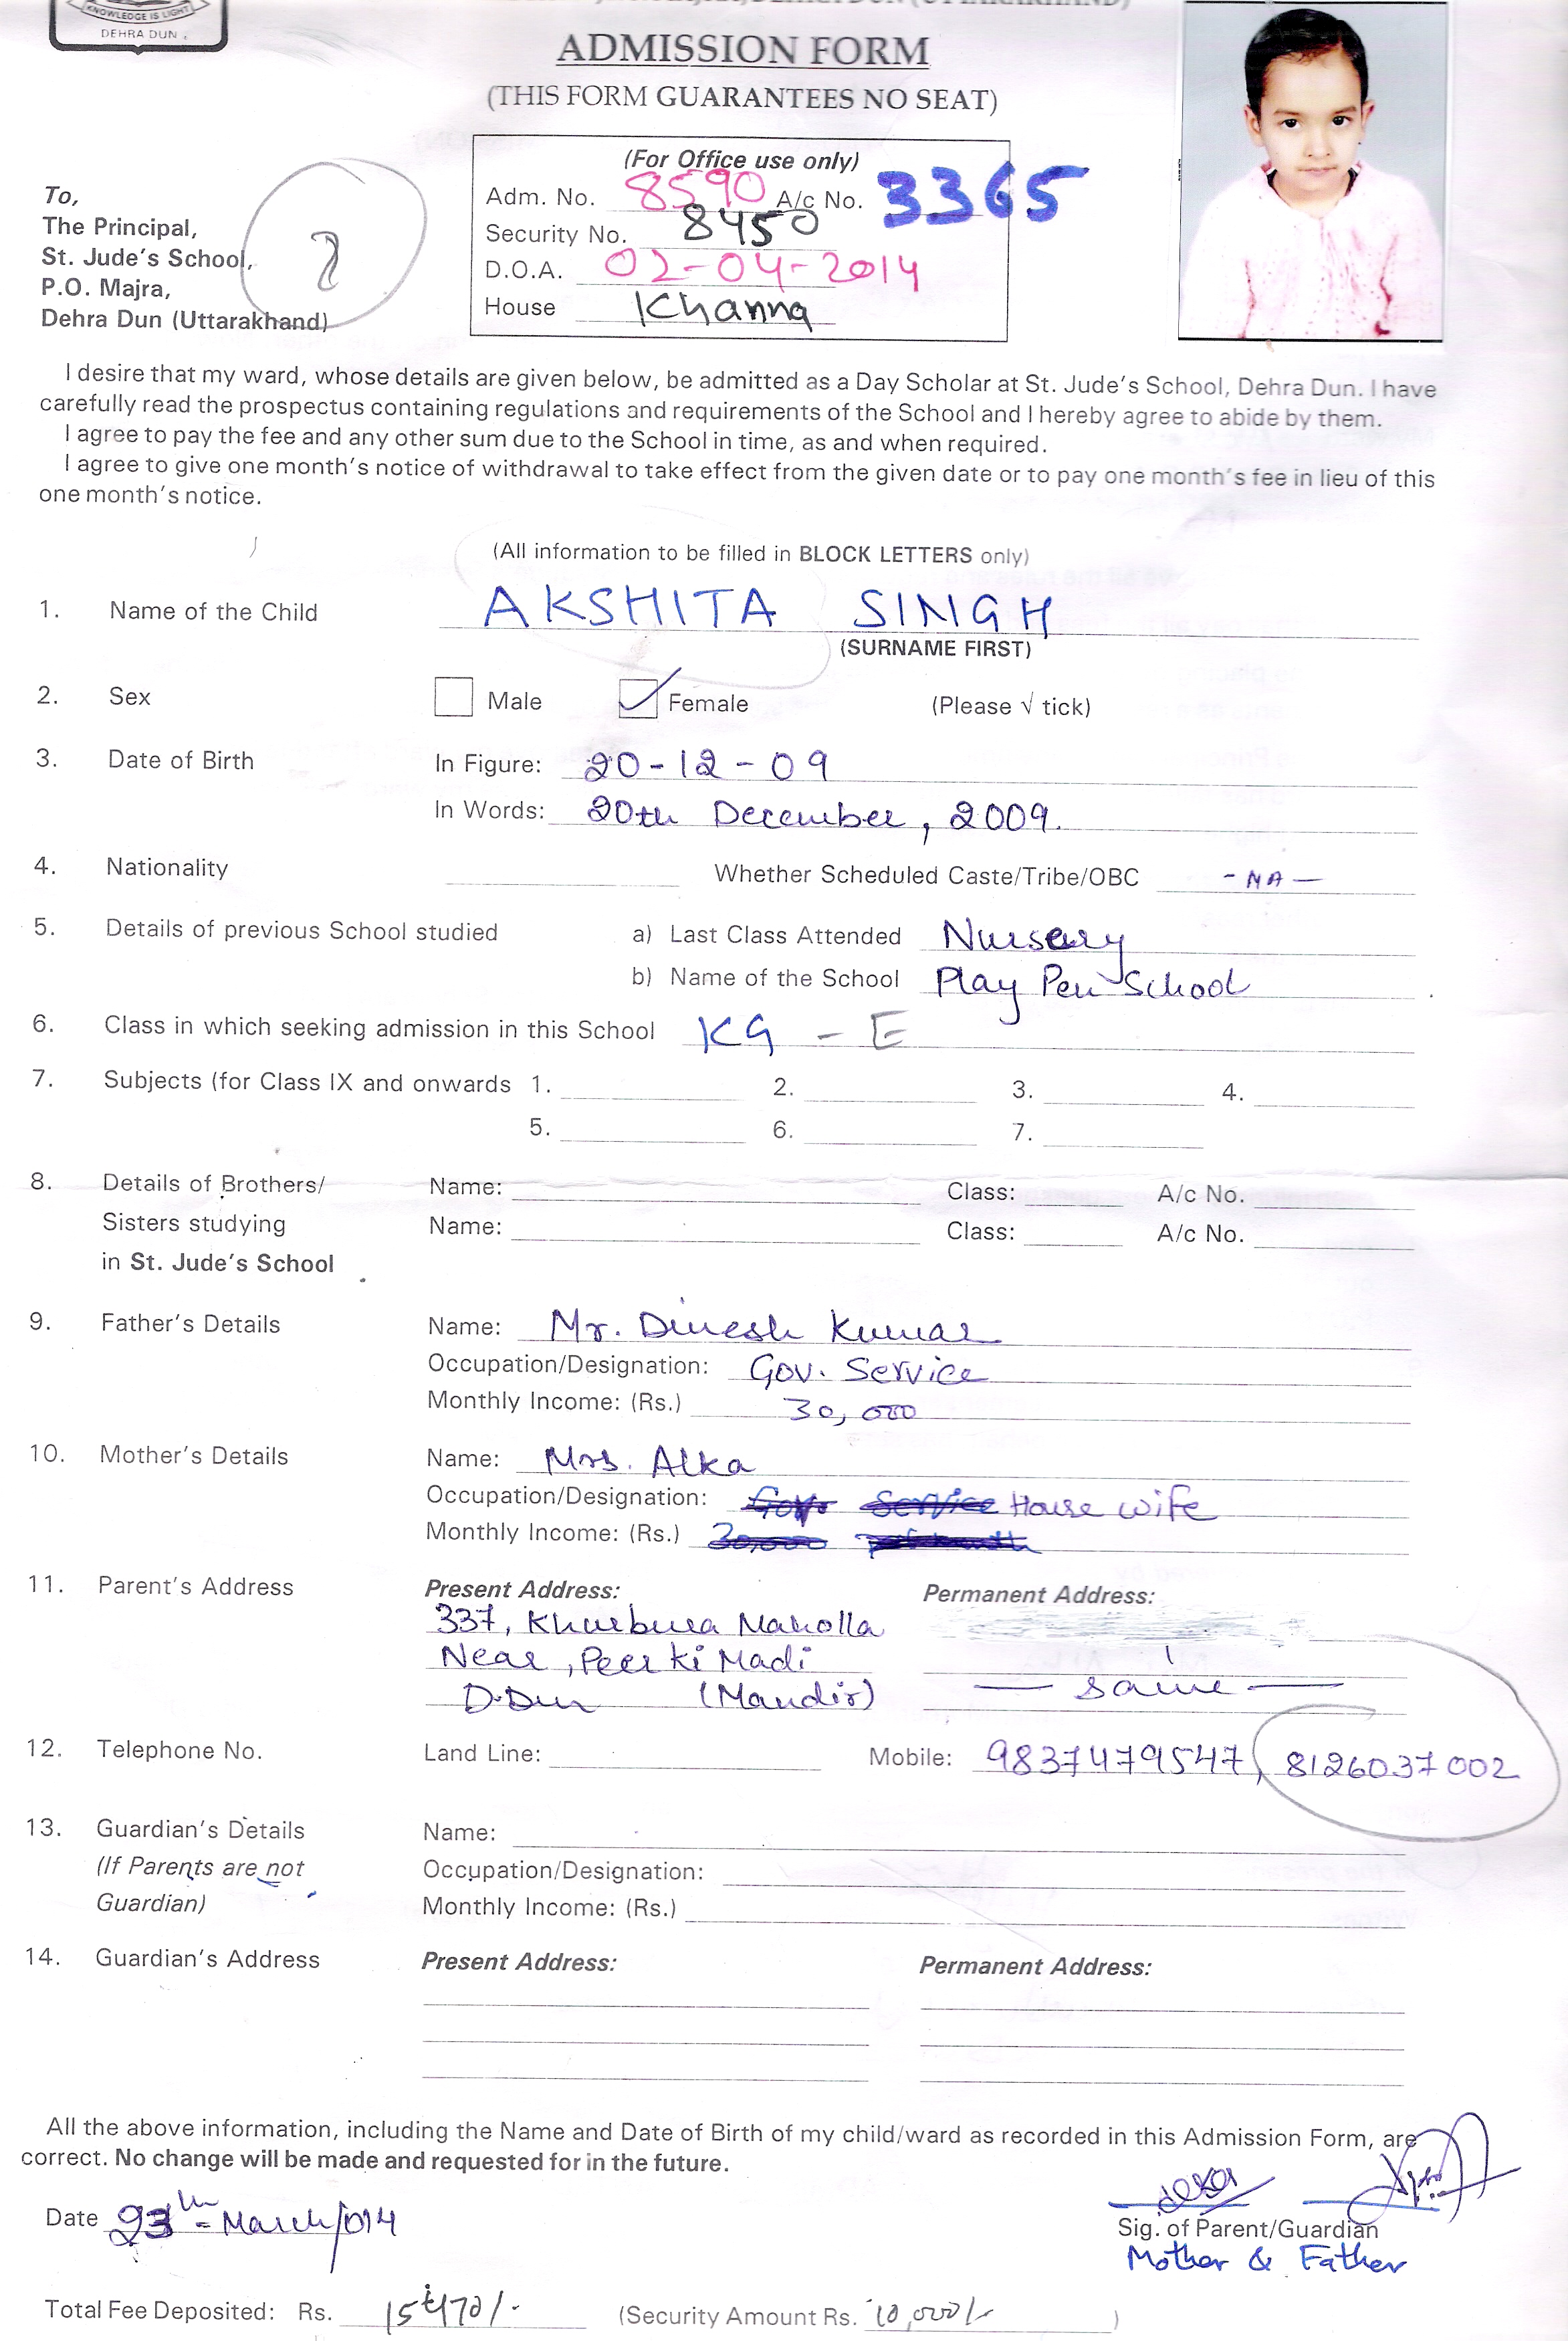 KNOWLEDGE IS LIGHT
DEHRA DUN
ADMISSION FORM
(THIS FORM GUARANTEES NO SEAT)
(For Office use only)
Adm. No. 8590 A/c No. 3365
Security No. 8450
D.O.A. 02-04-2014
House Khanna
To,
The Principal,
St. Jude's School,
P.O. Majra,
Dehra Dun (Uttarakhand)
I desire that my ward, whose details are given below, be admitted as a Day Scholar at St. Jude's School, Dehra Dun. I have
carefully read the prospectus containing regulations and requirements of the School and I hereby agree to abide by them.
I agree to pay the fee and any other sum due to the School in time, as and when required.
I agree to give one month's notice of withdrawal to take effect from the given date or to pay one month's fee in lieu of this
one month's notice.
(All information to be filled in BLOCK LETTERS only)
1. Name of the Child AKSHITA SINGH
(SURNAME FIRST)
2. Sex Male Female (Please √ tick)
3. Date of Birth In Figure: 20-12-09
In Words: 20th December, 2009.
4. Nationality Whether Scheduled Caste/Tribe/OBC - NA -
5. Details of previous School studied a) Last Class Attended Nursery
b) Name of the School Play Pen School
6. Class in which seeking admission in this School KG - E
7. Subjects (for Class IX and onwards 1. 2. 3. 4.
5. 6. 7.
8. Details of Brothers/ Name: Class: A/c No.
Sisters studying Name: Class: A/c No.
in St. Jude's School
9. Father's Details Name: Mr. Dinesh Kumar
Occupation/Designation: Gov. Service
Monthly Income: (Rs.) 30,000
10. Mother's Details Name: Mrs. Alka
Occupation/Designation: Gov. Service House wife
Monthly Income: (Rs.) 30,000
11. Parent's Address Present Address: Permanent Address:
337, Khurbura Maholla
Near, Peer ki Madi
D.Dun (Mandir) — Same —
12. Telephone No. Land Line: Mobile: 9837479547, 8126037002
13. Guardian's Details Name:
(If Parents are not Occupation/Designation:
Guardian) Monthly Income: (Rs.)
14. Guardian's Address Present Address: Permanent Address:
All the above information, including the Name and Date of Birth of my child/ward as recorded in this Admission Form, are
correct. No change will be made and requested for in the future.
Date March/014
Sig. of Parent/Guardian
Mother & Father
Total Fee Deposited: Rs. (Security Amount Rs. 10,000/- )